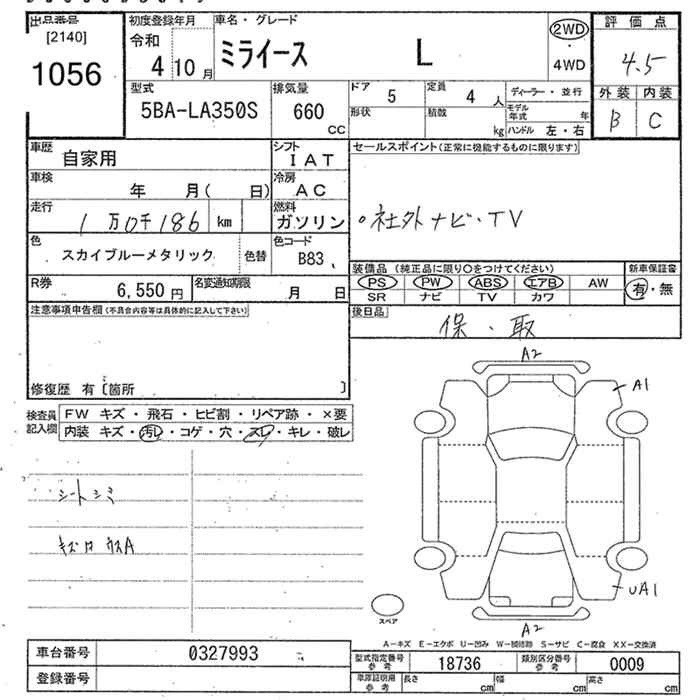 出品番号 初度登録年月 車名・グレード 評価点
[2140] 令和 ミライース L 2WD・4WD 4.5
1056 4 10月
外装 内装
型式 排気量 ドア 5 定員 4人 ディーラー・並行 B C
5BA-LA350S 660 CC 形状 積数 kg モデル年式 年
ハンドル 左・右
車歴 自家用 シフト IAT セールスポイント(正常に機能するものに限ります)
車検 年 月( 日) 冷房 AC
走行 1万0千186 km 燃料 ガソリン 社外ナビ・TV
色 スカイブルーメタリック 色替 色コード B83
装備品 (純正品に限り○をつけてください) 新車保証書
PS PW ABS エアB AW 有・無
SR ナビ TV カワ
R券 6,550円 名変通知期限 月 日
注意事項申告欄(不具合内容等は具体的に記入して下さい) 後日品
保・取
修復歴 有〔箇所 〕
検査員記入欄 FW キズ・飛石・ヒビ割・リペア跡・×要
内装 キズ・汚レ・コゲ・穴・スレ・キレ・破レ
A2
A1
シートシミ
UA1
スペア
A2
A-キズ E-エクボ U-凹み W-補修跡 S-サビ C-腐食 XX-交換済
車台番号 0327993 型式指定番号 参考 18736 類別区分番号 参考 0009
登録番号 車庫証明用 参考 長さ cm 幅 cm 高さ cm